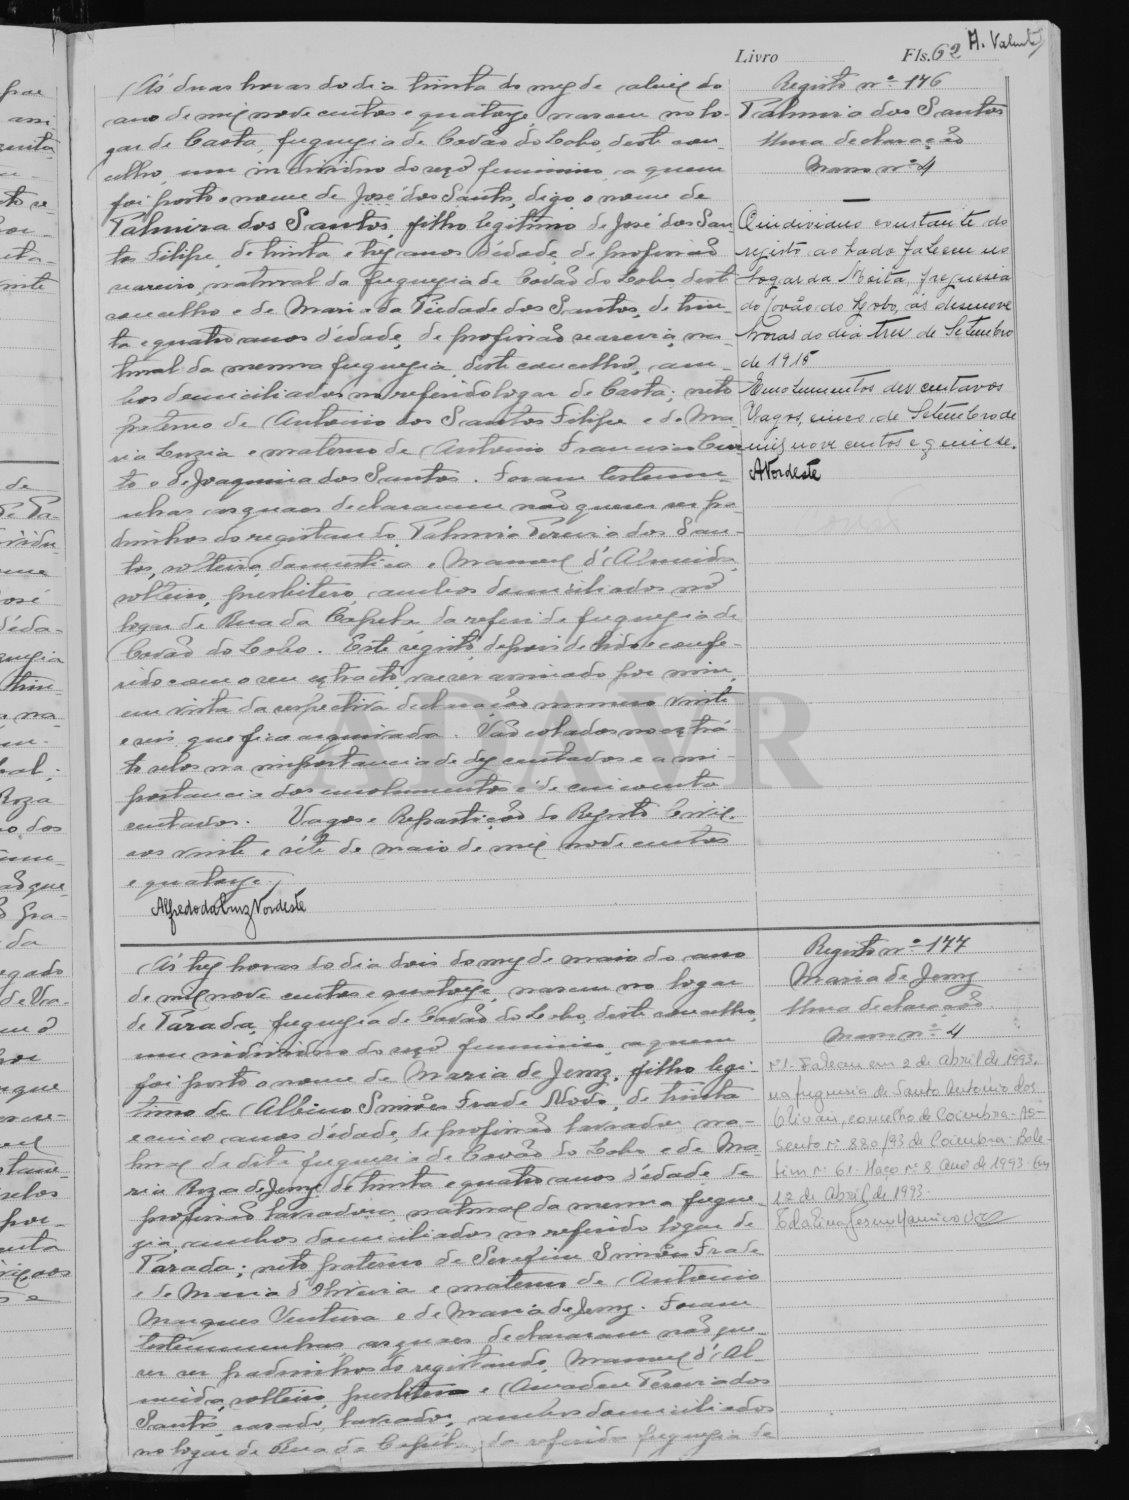 Livro Fls. 62 A. Valente
Registo nº 176
Palmira dos Santos
Uma declaração
Maço nº 4
Ás duas horas do dia trinta do mez de abril do
ano de mil nove centos e quatorze, nasceu no lo-
gar de Canta, freguezia de Covão do Lobo, deste con-
celho, um individuo do sexo feminino, a quem
foi posto o nome de José dos Santos, digo, o nome de
Palmira dos Santos, filho legitimo de José dos San
tos Filipe, de trinta e trez anos d'edade, de profissão
seareiro, natural da freguezia de Covão do Lobo, deste
concelho e de Maria da Piedade dos Santos, de trin-
ta e quatro anos d'edade, de profissão seareira, na-
tural da mesma freguezia, deste concelho, am-
bos domiciliados no referido logar de Canta; neto
paterno de Antonio dos Santos Filipe e de Ma-
ria Luzia e materno de Antonio Francisco
to e de Joaquina dos Santos. Foram testemu-
nhas as quaes declararam não querer ser pa-
drinhos do registando, Palmira Pereira dos San-
tos, solteira, domestica e Manuel d'Almeida,
solteiro, presbitero, ambos domiciliados no
logar de Rua da Capela da referida freguezia de
Covão do Lobo. Este registo, depois de lido e confe-
rido com o seu extracto, vae ser assinado por mim,
em vista da respectiva declaração numero vinte
e seis, que fica arquivada. Vão colados no extrá-
to selos na importancia de dez centavos e a im-
portancia dos emolumentos é de cincoenta
centavos. Vagos e Repartição do Registo Civil,
aos vinte e sete de maio de mil nove centos
e quatorze.
Alfredo da Cruz Nordeste
O individuo constante do
registo ao lado faleceu no
logar da Moita, freguesia
do Covão do Lobo, ás desenove
horas do dia tres de Setembro
de 1915
Emolumentos dez centavos
Vagos, cinco de Setembro de
mil nove centos e quinze.
A Nordeste
Registo nº 177
Maria de Jesuz
Uma declaração
Maço nº 4
Ás trez horas do dia dois do mez de maio do ano
de mil nove centos e quatorze, nasceu no logar
de Parada, freguezia de Covão do Lobo, deste concelho,
um individuo do sexo feminino, a quem
foi posto o nome de Maria de Jesuz, filho legi-
timo de Albino Simões Frade Novo, de trinta
e cinco anos d'edade, de profissão lavrador, na-
tural da dita freguezia de Covão do Lobo e de Ma
ria Roza de Jesuz, de trinta e quatro anos d'edade, de
profissão lavradora, natural da mesma fregue-
zia, ambos domiciliados no referido logar de
Parada; neto paterno de Serafim Simões Frade
e de Maria d'Oliveira e materno de Antonio
Marques Ventura e de Maria de Jesuz. Foram
testemunhas, as quaes declararam não que-
rer ser padrinhos do registando, Manuel d'Al-
meida, solteiro, presbitero e Amadeu Pereira dos
Santos, casado, lavrador, ambos domiciliados
no logar de Rua da Capela, da referida freguezia de
Nº1- Faleceu em 2 de Abril de 1993,
na freguesia de Santo Antonio dos
Olivais, concelho de Coimbra- As-
sento nº 880/93 de Coimbra- Bole-
tim nº 61. Maço nº 8 Ano de 1993. Em
12 de Abril de 1993.
ADAVR